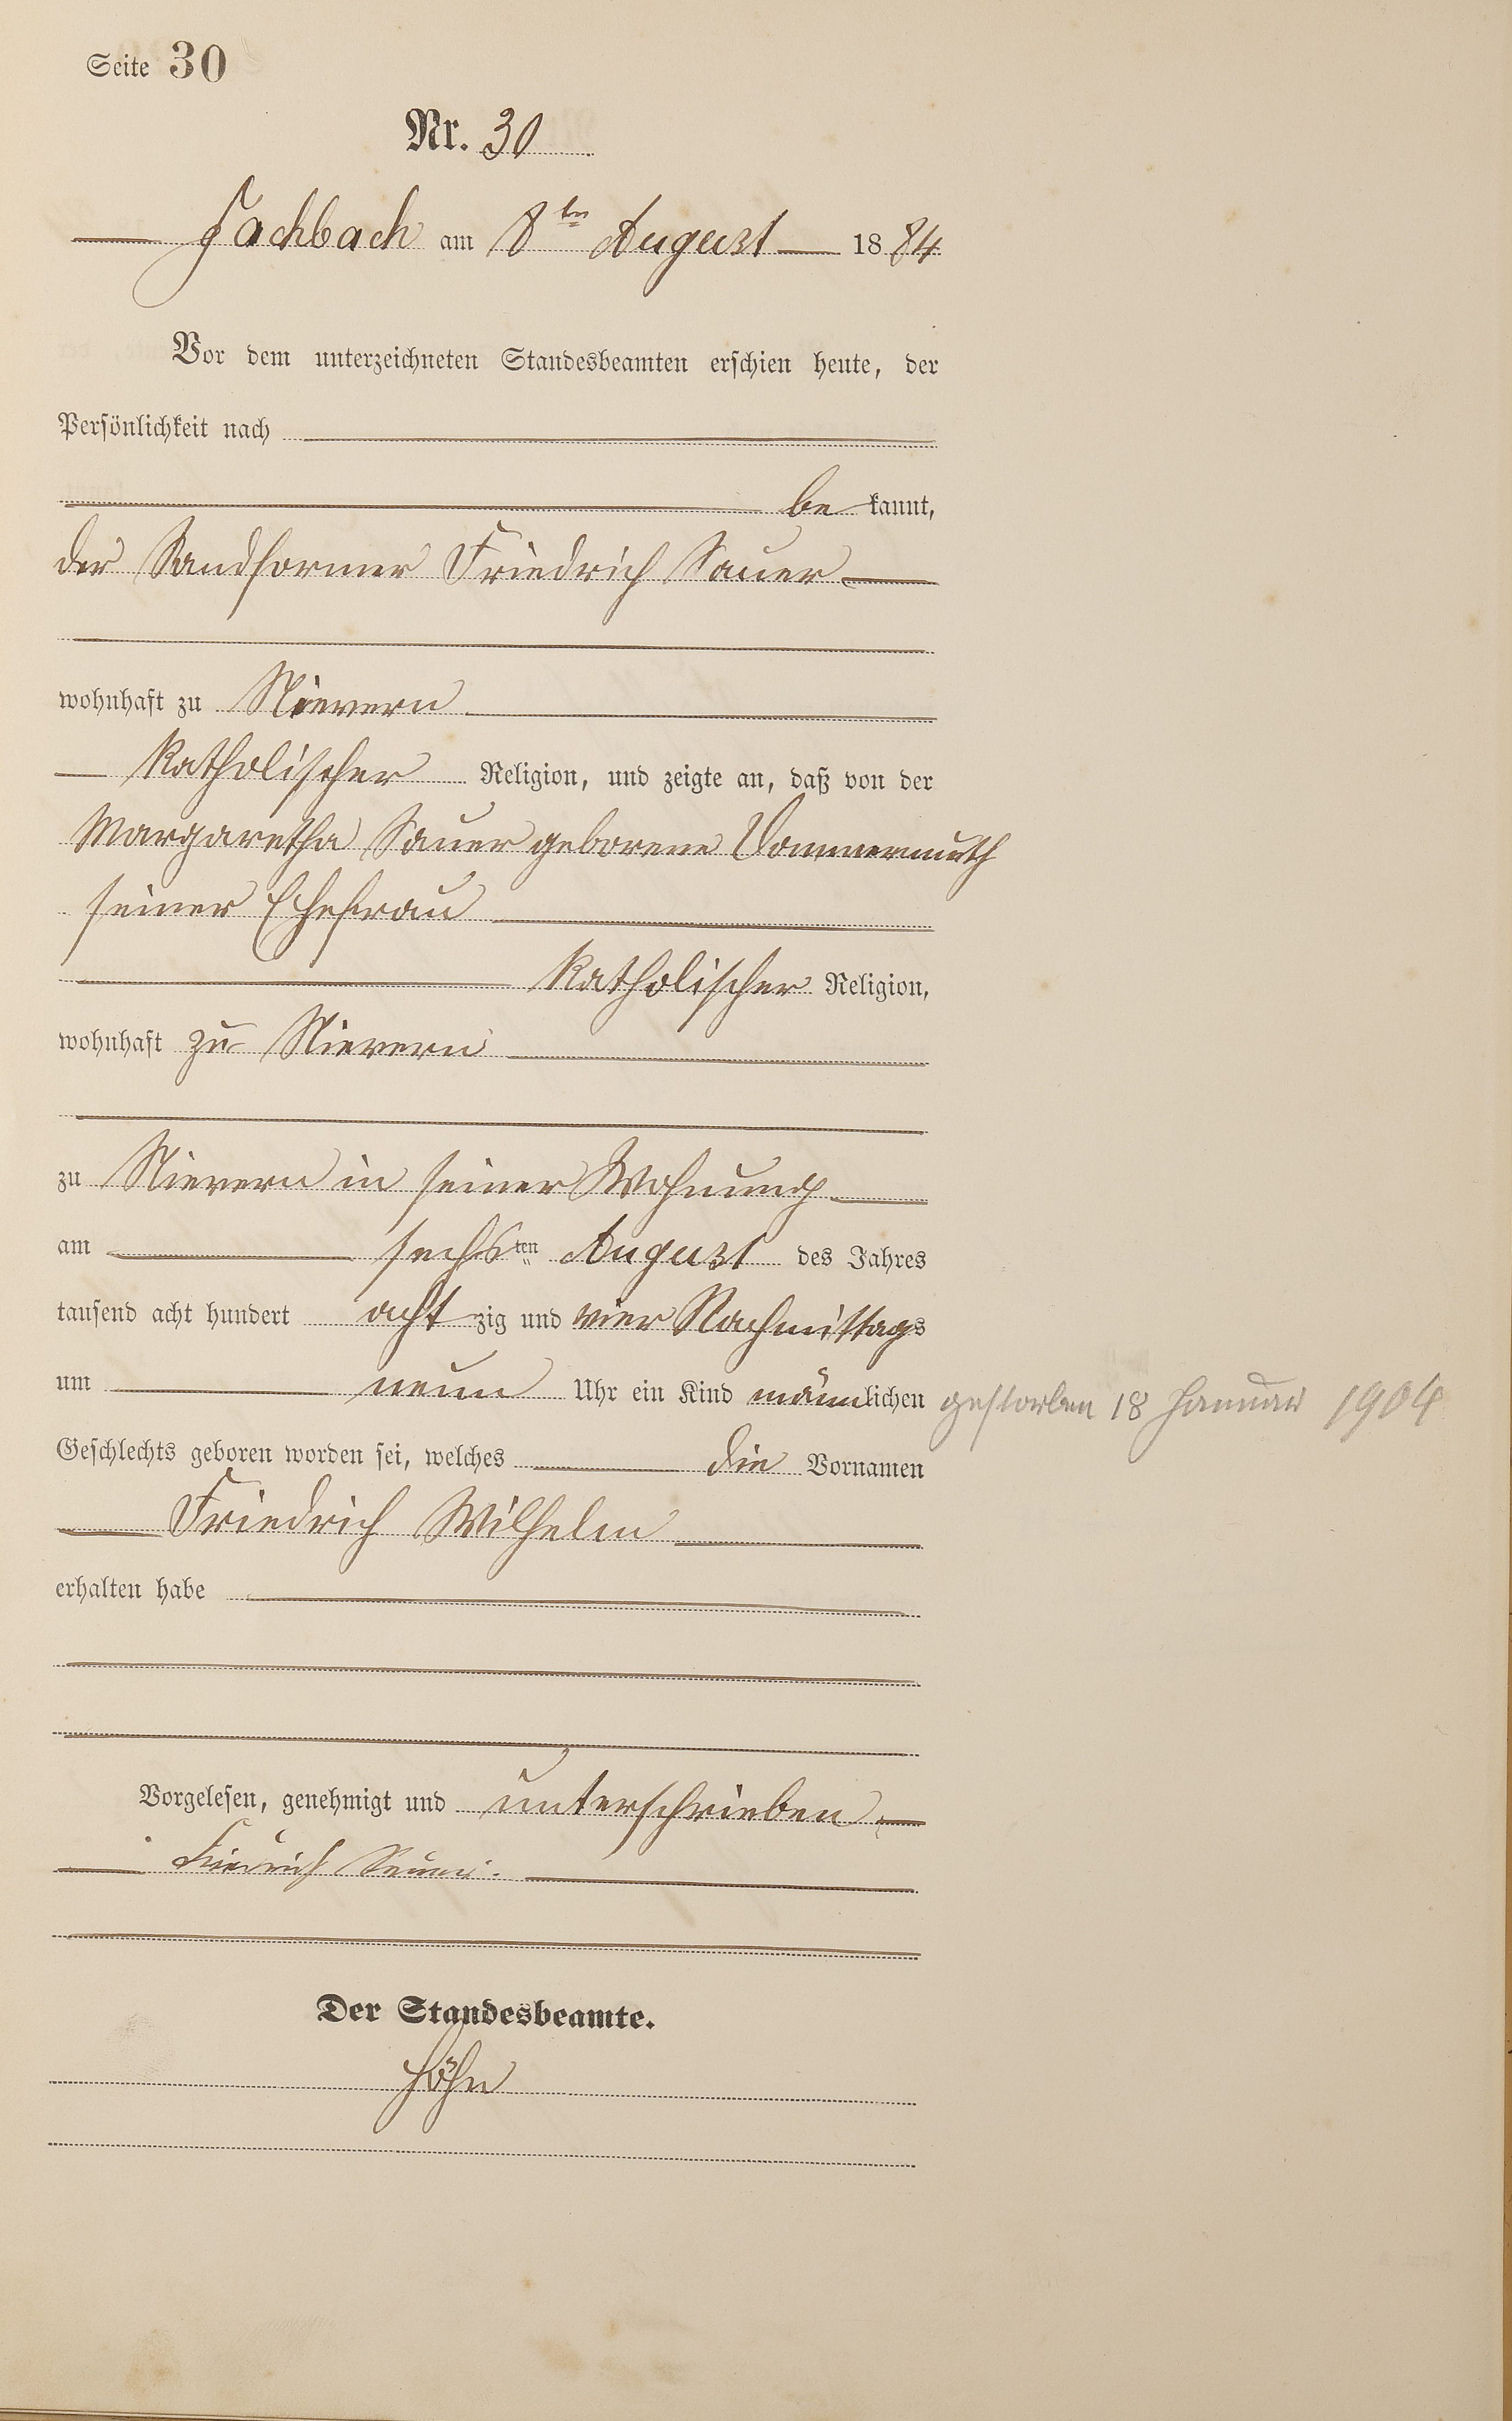 Seite 30
Nr. 30
Fachbach am 8ten August 1884
Vor dem unterzeichneten Standesbeamten erschien heute, der
Persönlichkeit nach
bekannt,
der Sandformer Friedrich Sauer
wohnhaft zu Nievern
katholischer Religion, und zeigte an, daß von der
Margaretha Sauer geborene Dommermuth
seiner Ehefrau
katholischer Religion,
wohnhaft zu Nievern
zu Nievern in seiner Wohnung
am sechsten August des Jahres
tausend acht hundert achtzig und vier Nachmittags
um neun Uhr ein Kind männlichen gestorben 18 Januar 1904
Geschlechts geboren worden sei, welches die Vornamen
Friedrich Wilhelm
erhalten habe
Vorgelesen, genehmigt und unterschrieben
Friedrich Sauer.
Der Standesbeamte.
Höhn